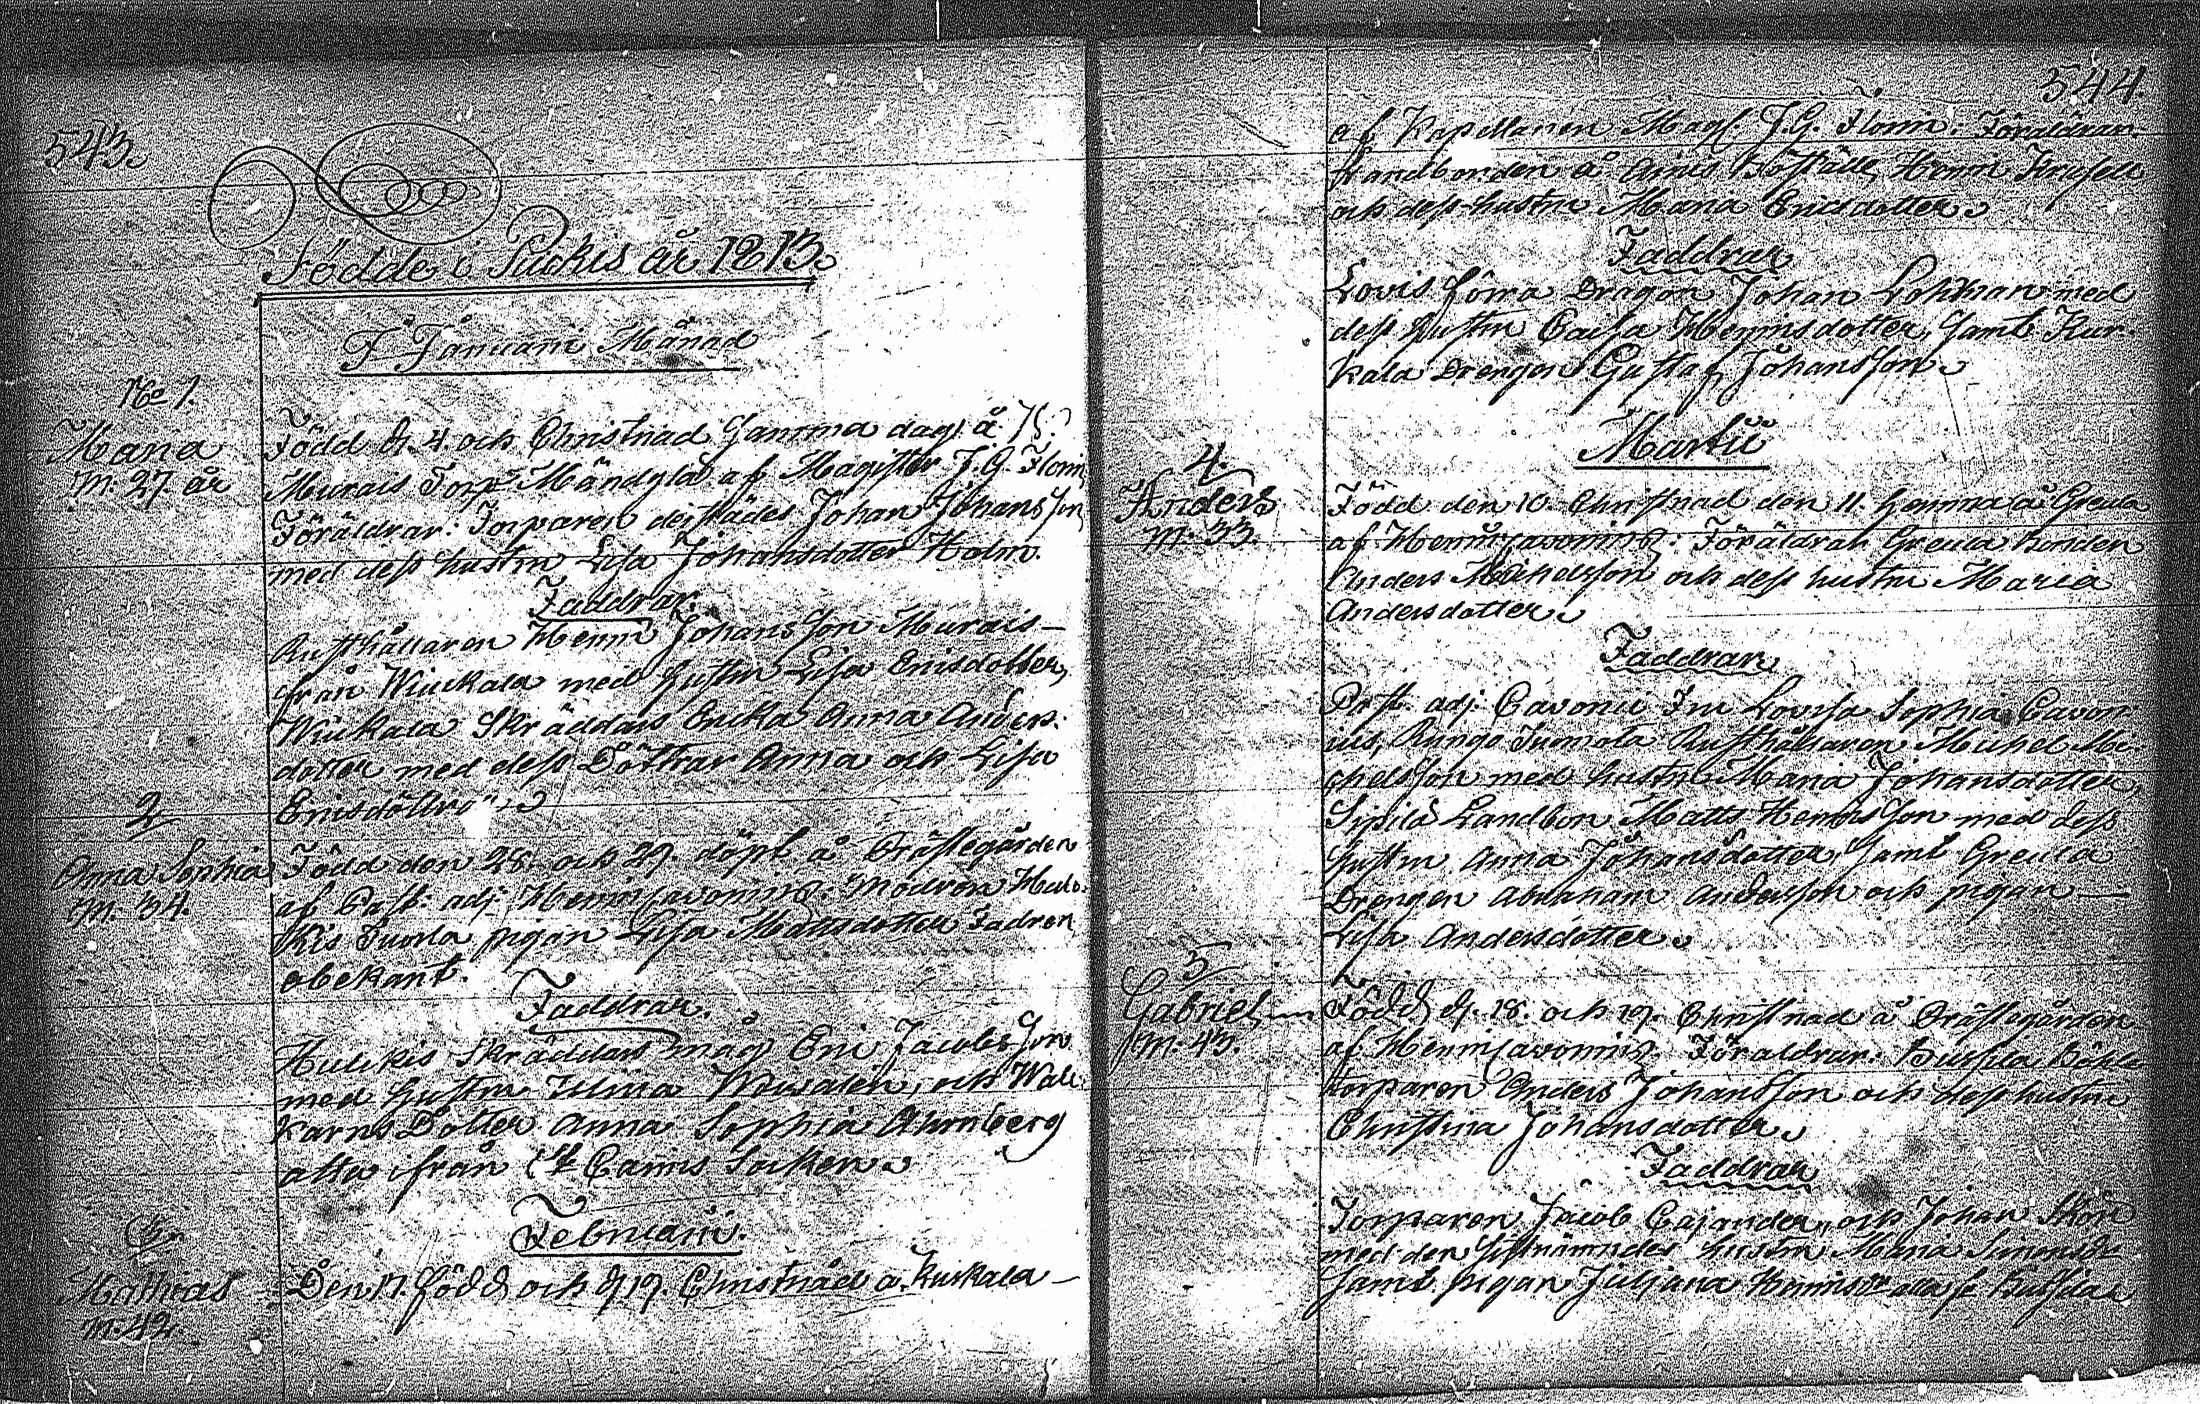 543.
Födde i Puckis år 1813.
I Januarii Månad
No 1.
Maria
M: 27 år
Född d. 4. och Christnad samma dag å
Murais Torp Mändylä af Magister J. G. Florin
Föräldrar: Torparen derstädes Johan Johansson
med dess hustru Lisa Johansdotter Holm
Faddrar.
Rusthållaren Henric Johansson Murais
från Wiukala med hustru Lisa Ericsdotter,
Wiukala Skräddars Enka Anna Anders-
dotter med dess Döttrar Anna och Lisa
Ericsdöttra
2
Anna Sophia
M. 34.
Född den 28. och 29. döpt å Prästegården
af Past: adj: Henric Cavonius: Modren Hulc-
kis Tuorla pigan Lisa Matsdotter Fadren
obekant.
Faddrar.
Hulckis Skräddars måg Eric Jacobsson
med hustru Ulrica och Wal-
karns Dotter Anna Sophia Ahrnberg
alla ifrån St Carins Socken
Februarii.
3.
Mathias
M. 42.
Den 17. född och d 19. Christnad å Kurkala
544.
af Kapellanen Mag. J. G. Florin. Föräldrar
Landbonden å Boställe Henric
och dess hustru Maria Ericsdotter
Faddrar
Lovis förra Dragon Johan med
dess hustru Caisa Henricsdotter, samt Kur-
kala Drengen Gustaf Johansson
Martii
4.
Anders
M. 33.
Född den 10. Christnad den 11. hemma å Greula
af Henric Cavonius: Föräldrar Greula Bonden
Anders Michelsson och dess hustru Maria
Andersdotter
Faddrar
Past. adj: Cavonii Fru Lovisa Sophia Cavon-
ius, Rungo Tuomola Rusthållaren Michel Mi-
chelsson med hustru Maria Johansdotter,
Sipilä Landbon Matts Henricsson med dess
hustru Anna Johansdotter, samt Greula
Drengen Abraham Andersson och pigan
Lisa Andersdotter
5
Gabriel
M. 43.
Född d. 18. och 19. Christnad å Prästegården
af Henric Cavonius. Föräldrar:
torparen Anders Johansson och dess hustru
Christina Johansdotter
Faddrar
Torparen Jacob Cajander, och Johan Skön
med den sistnämndes hustru Maria Simonsdr
samt pigan Juliana Henricsdr alla fr